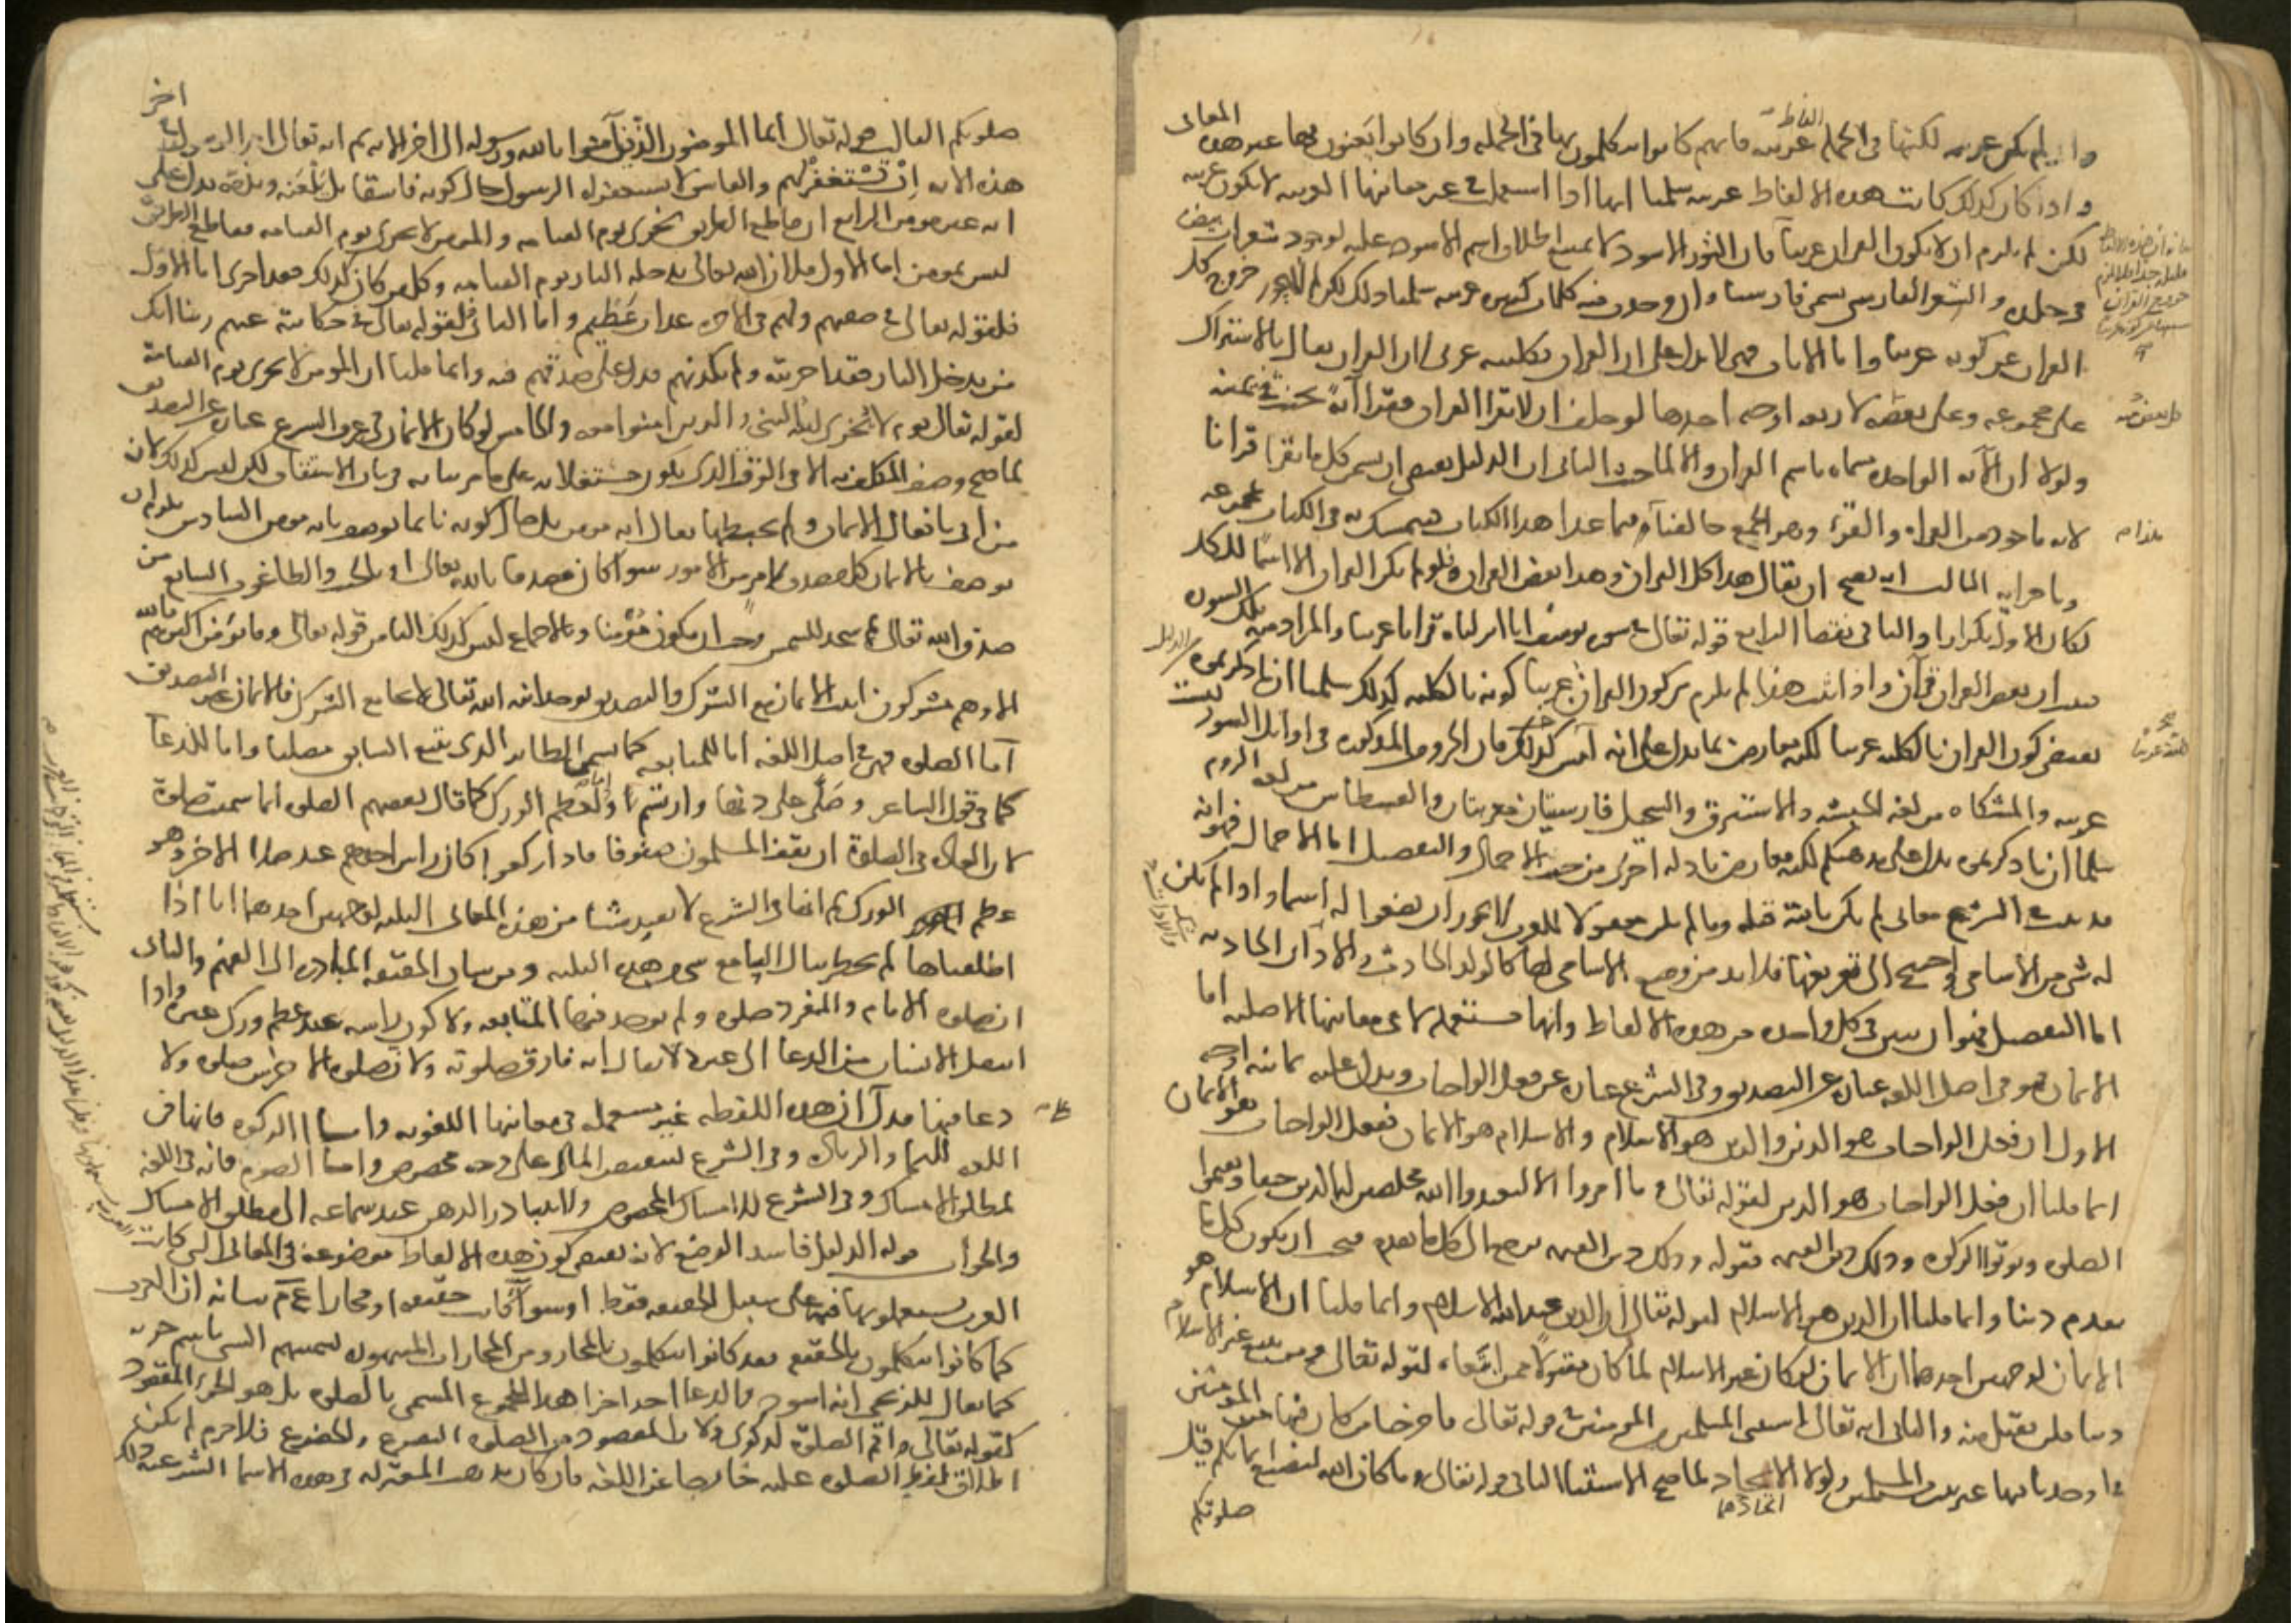 وان لم يكن عربيه لكنها في الجمله الفاظ عربيه فانهم كانوا يتكلمون بها في الجمله وان كانوا يعنون بها غير هذه المعاني
واذا كان كذلك كانت هذه الالفاظ عربيه سلمنا انها اذا استعملت في غير معانيها العربيه لا يكون عربيه
لكن لم يلزم ان لا يكون القران عربيا فان الثور الاسود لا يمتنع اطلاق اسم الاسود عليه لوجود شعرات بيض
في جلده والشعر الفارسي يسمى فارسيا وان وجدت فيه كلمات كثيره عربيه سلمنا ذلك لكن لم لا يجوز خروج كل
القران عن كونه عربيا واما الايات فهي لا تدل على ان القران بكليته عربي لان القران يقال بالاشتراك
على مجموعه وعلى بعضه لاربعه اوجه احدها لو حلف ان لا يقرا القران فقرا آية حنث في يمينه
ولولا ان الآيه الواحده مسماه باسم القران والا لما حنث الثاني ان الدليل يقتضي ان يسمى كل ما يقرا قرانا
لانه ماخوذ من القراه والقرء وهو الجمع خالفناه فيما عدا هذا الكتاب فيتمسك به في الكتاب بمجموعه
وباجزايه الثالث انه يصح ان يقال هذا كل القران وهذا بعض القران ولو لم يكن القران الا اسما للكل
لكان الاول تكرارا والثاني نقضا الرابع قوله تعالى في سوره يوسف انا انزلناه قرانا عربيا والمراد منه تلك السوره
فثبت ان بعض القران قرآن واذا ثبت هذا لم يلزم من كون القران عربيا كونه بالكليه كذلك سلمنا ان ما ذكرتموه
يقتضي كون القران بالكليه عربيا لكنه معارض بما يدل على انه ليس كذلك فان الحروف المذكوره في اوائل السور ليست
عربيه والمشكاه من لغه الحبشه والاستبرق والسجيل فارسيتان معربتان والقسطاس من لغه الروم
سلمنا ان ما ذكرتموه يدل على مذهبكم لكنه معارض بادله اخرى من حيث الاجمال والتفصيل اما الاجمال فهو انه
قد ثبت في الشرع معاني لم تكن ثابتة قبله وما لم يكن معقولا للعرب لا يجوز ان يضعوا له اسما واذا لم يكن
له شي من الاسامي واحتيج الى تعريفها فلا بد من وضع الاسامي لها كالولد الحادث والاداة الحادثه
اما التفصيل فهو ان نبين في كل واحده من هذه الالفاظ وانها مستعمله لا في معانيها الاصليه اما
الايمان فهو في اصل اللغه عباره عن التصديق وفي الشرع عباره عن فعل الواجبات ويدل عليه ثمانيه اوجه
الاول ان فعل الواجبات هو الدين والدين هو الاسلام والاسلام هو الايمان ففعل الواجبات هو الايمان
انما قلنا ان فعل الواجبات هو الدين لقوله تعالى وما امروا الا ليعبدوا الله مخلصين له الدين حنفا ويقيموا
الصلوه ويوتوا الزكوه وذلك دين القيمه فقوله وذلك دين القيمه يرجع الى كل ما تقدم فيجب ان يكون كل ما
تقدم دينا وانما قلنا ان الدين هو الاسلام لقوله تعالى ان الدين عند الله الاسلام وانما قلنا ان الاسلام هو
الايمان لوجهين احدهما ان الايمان لو كان غير الاسلام لما كان مقبولا ممن ابتغاه لقوله تعالى ومن يبتغ غير الاسلام
دينا فلن يقبل منه والثاني انه تعالى استثنى المسلمين من المومنين في قوله تعالى فاخرجنا من كان فيها من المومنين
فما وجدنا فيها غير بيت من المسلمين ولولا الاتحاد لما صح الاستثنا الثاني قوله تعالى وما كان الله ليضيع ايمانكم قيل
اتحادهما
صلوتكم
صلوتكم الثالث قوله تعالى انما المومنون الذين آمنوا بالله ورسوله الى اخر الايه ثم انه تعالى امر الرسول في اخر
هذه الايه ان يستغفر لهم والفاسق لا يستغفر له الرسول حال كونه فاسقا بل يلعنه ويذمه فدل على
انه غير مومن الرابع ان قاطع الطريق يخزى يوم القيامه والمومن لا يخزى يوم القيامه فقاطع الطريق
ليس بمومن اما الاول فلان الله تعالى يدخله النار يوم القيامه وكل من كان كذلك فقد اخزي اما الاول
فلقوله تعالى في صفتهم ولهم في الاخره عذاب عظيم واما الثاني فلقوله تعالى حكاية عنهم ربنا انك
من تدخل النار فقد اخزيته ولم يكذبهم فدل على صدقهم فيه وانما قلنا ان المومن لا يخزى يوم القيامة
لقوله تعالى يوم لا يخزي الله النبي والذين امنوا معه والخامس لو كان الايمان في عرف الشرع عباره عن التصديق
لما صح وصف المكلف به الا في الوقت الذي يكون مشتغلا به على ما مر بيانه في باب الاشتقاق لكن ليس كذلك لان
من اتى بافعال الايمان ولم يحبطها يقال انه مومن بل حال كونه نايما يوصف بانه مومن السادس يلزم ان
يوصف بالايمان كل مصدق بامر من الامور سوا كان مصدقا بالله تعالى او بالجبت والطاغوت السابع من
صدق الله تعالى ثم سجد للشمس وجب ان يكون مومنا وبالاجماع ليس كذلك الثامن قوله تعالى وما يؤمن اكثرهم بالله
الا وهم مشركون اثبت الايمان مع الشرك والتصديق بوحدانيه الله تعالى لا يجامع الشرك فالايمان غير التصديق
اما الصلوه فهي في اصل اللغه اما للمتابعه كما يسمى الطاير الذي يتبع السابق مصليا واما للدعا
كما في قول الشاعر وصلى على دنها وارتسم او لعظم الورك كما قال بعضهم الصلوه انما سميت صلوة
لان العاده في الصلوة ان يقف المسلمون صفوفا فاذا ركعوا كان راس احدهم عند صلا الاخر وهو
عظم الورك ثم انها في الشرع لا تفيد شيئا من هذه المعاني الثلثه لوجهين احدهما انا اذا
اطلقناها لم يخطر ببال السامع شي من هذه الثلثه ومن شان الحقيقه المبادره الى الفهم والثاني
ان صلوه الامام والمنفرد صلوه ولم يوجد فيها المتابعه ولا كون راسه عند عظم ورك غيره واذا
انتقل الانسان من الدعا الى غيره لا يقال انه فارق صلوته ولان صلوه الاخرس صلوه ولا
دعا فيها فدل ان هذه اللفظه غير مستعمله في معانيها اللغويه واما الزكوه فانها في
اللغه للنما والزياده وفي الشرع لتنقيص المال على وجه مخصوص واما الصوم فانه في اللغه
لمطلق الامساك وفي الشرع للامساك المخصوص ولا يتبادر الذهن عند سماعه الى مطلق الامساك
والجواب قوله الدليل فاسد الوضع لانه يقتضي كون هذه الالفاظ موضوعه في المعاني التي كانت
العرب يستعملونها فيها على سبيل الحقيقه فقط او سوا كانت حقيقه او مجازا ع م بيانه ان العرب
كما كانوا يتكلمون بالحقيقه فقد كانوا يتكلمون بالمجاز ومن المجازات المشهوره تسميتهم الشي باسم جزيه
كما يقال للزنجي انه اسود والدعا احد اجزا هذا المجموع المسمى بالصلوه بل هو الجزء المقصود
كقوله تعالى واقم الصلوة لذكري ولان المقصود من الصلوه التضرع والخضوع فلا جرم لم يكن
اطلاق لفظ الصلوه عليه خارجا عن اللغه فان كان مذهب المعتزله في هذه الاسما الشرعيه ذلك